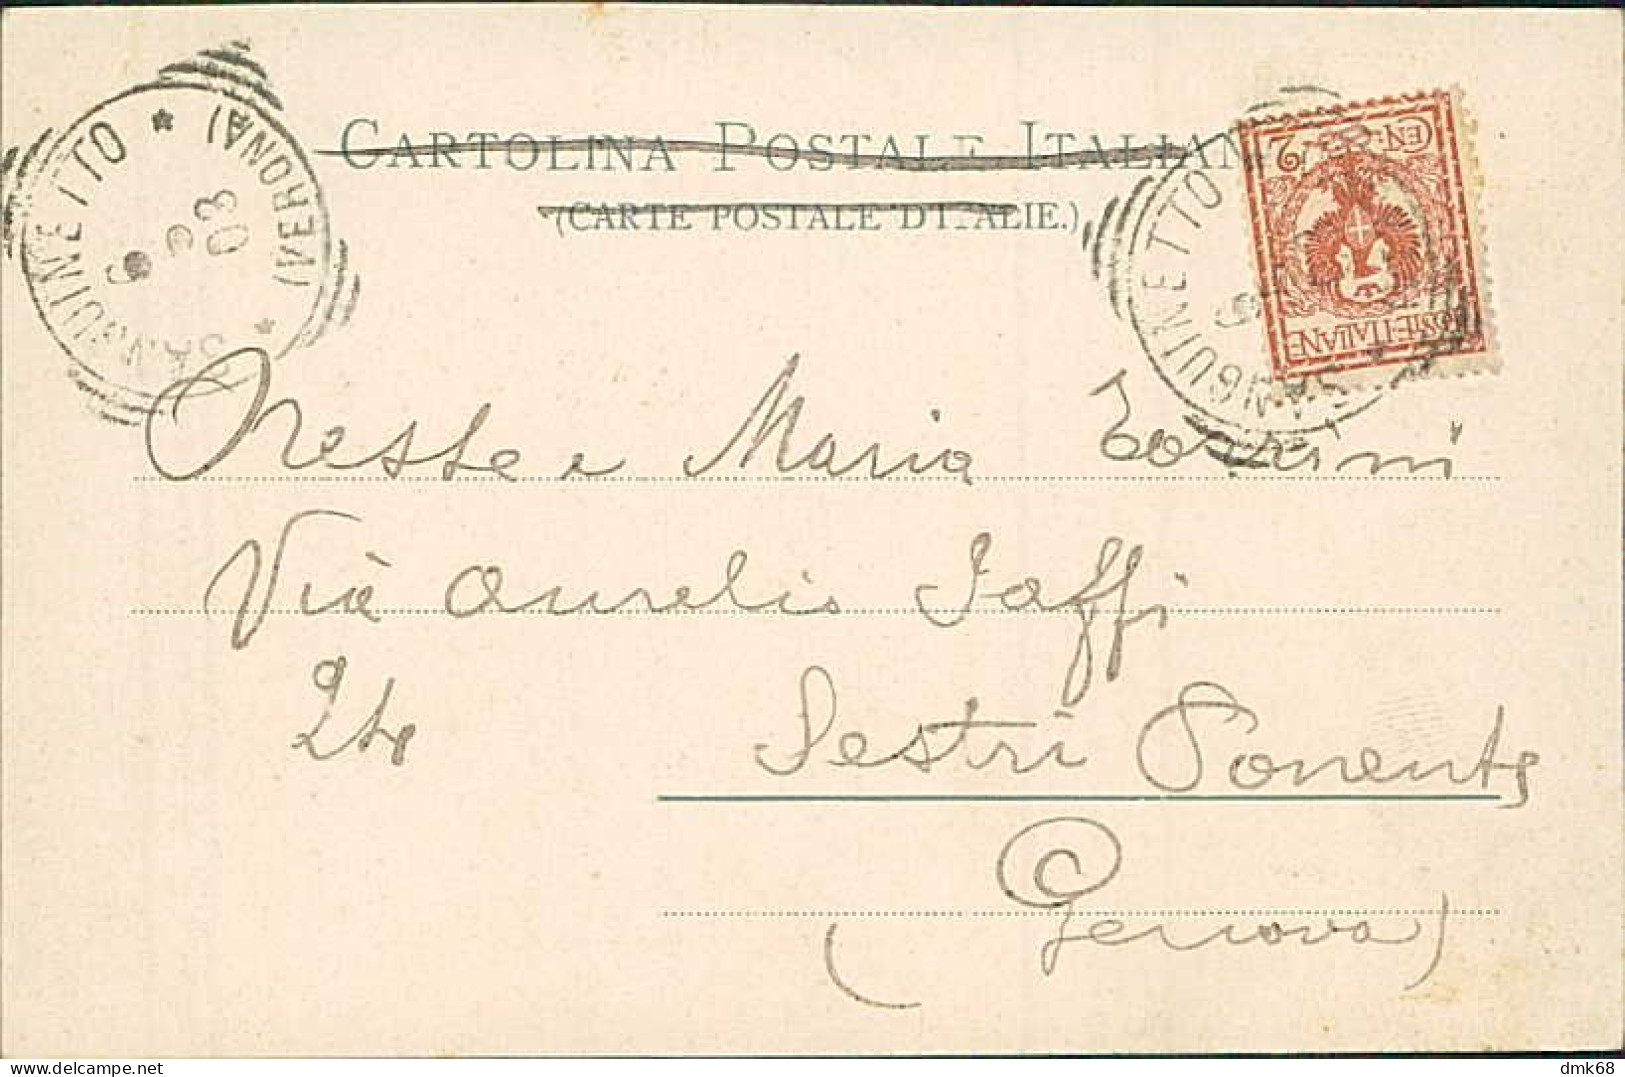 CARTOLINA POSTALE ITALIANA
(CARTE POSTALE D'ITALIE.)
SANGUINETTO * (VERONA) *
6 03
CEN: 2
POSTE·ITALIANE
SANGUINETTO
Oreste e Maria Torrini
Via Aurelio Saffi
24
Sestri Ponente
(Genova)
dmk68